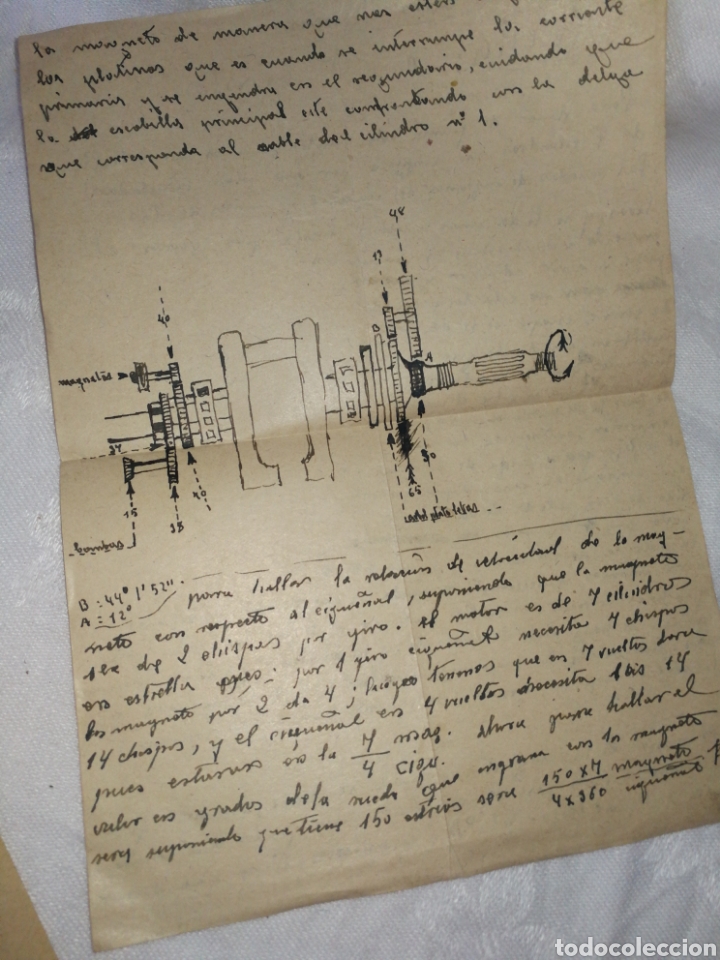 la magneto de manera que nas esten
los platinos que es cuando se interrumpe la corriente
primaria y se engendra en el segundario, cuidando que
la escobilla principal este confrontando con la delga
que corresponda al cable del cilindro nº 1.
48
13
40
D
A
magnetos
27
15
38
40
65
30
B = 44º 1' 52''
A = 12º
para hallar la relacion de velocidad de la mag-
neto con respecto al cigueñal, suponiendo que la magneto
sea de 2 chispas por giro. El motor es de 7 cilindros
en estrella pues; por 1 giro cigueñal necesita 7 chispas
la magneto por 2 da 4; luego tenemos que en 7 vueltas dara
14 chispas, y el cigueñal en 4 vueltas necesita las 14
pues estaran en la 7/4 mag. cigu. Ahora para hallar el
valor en grados de la rueda que engrana con la magneto
sera suponiendo que tiene 150 estrias sera 150 x 7 / 4 x 360 magneto cigueñal
todocoleccion